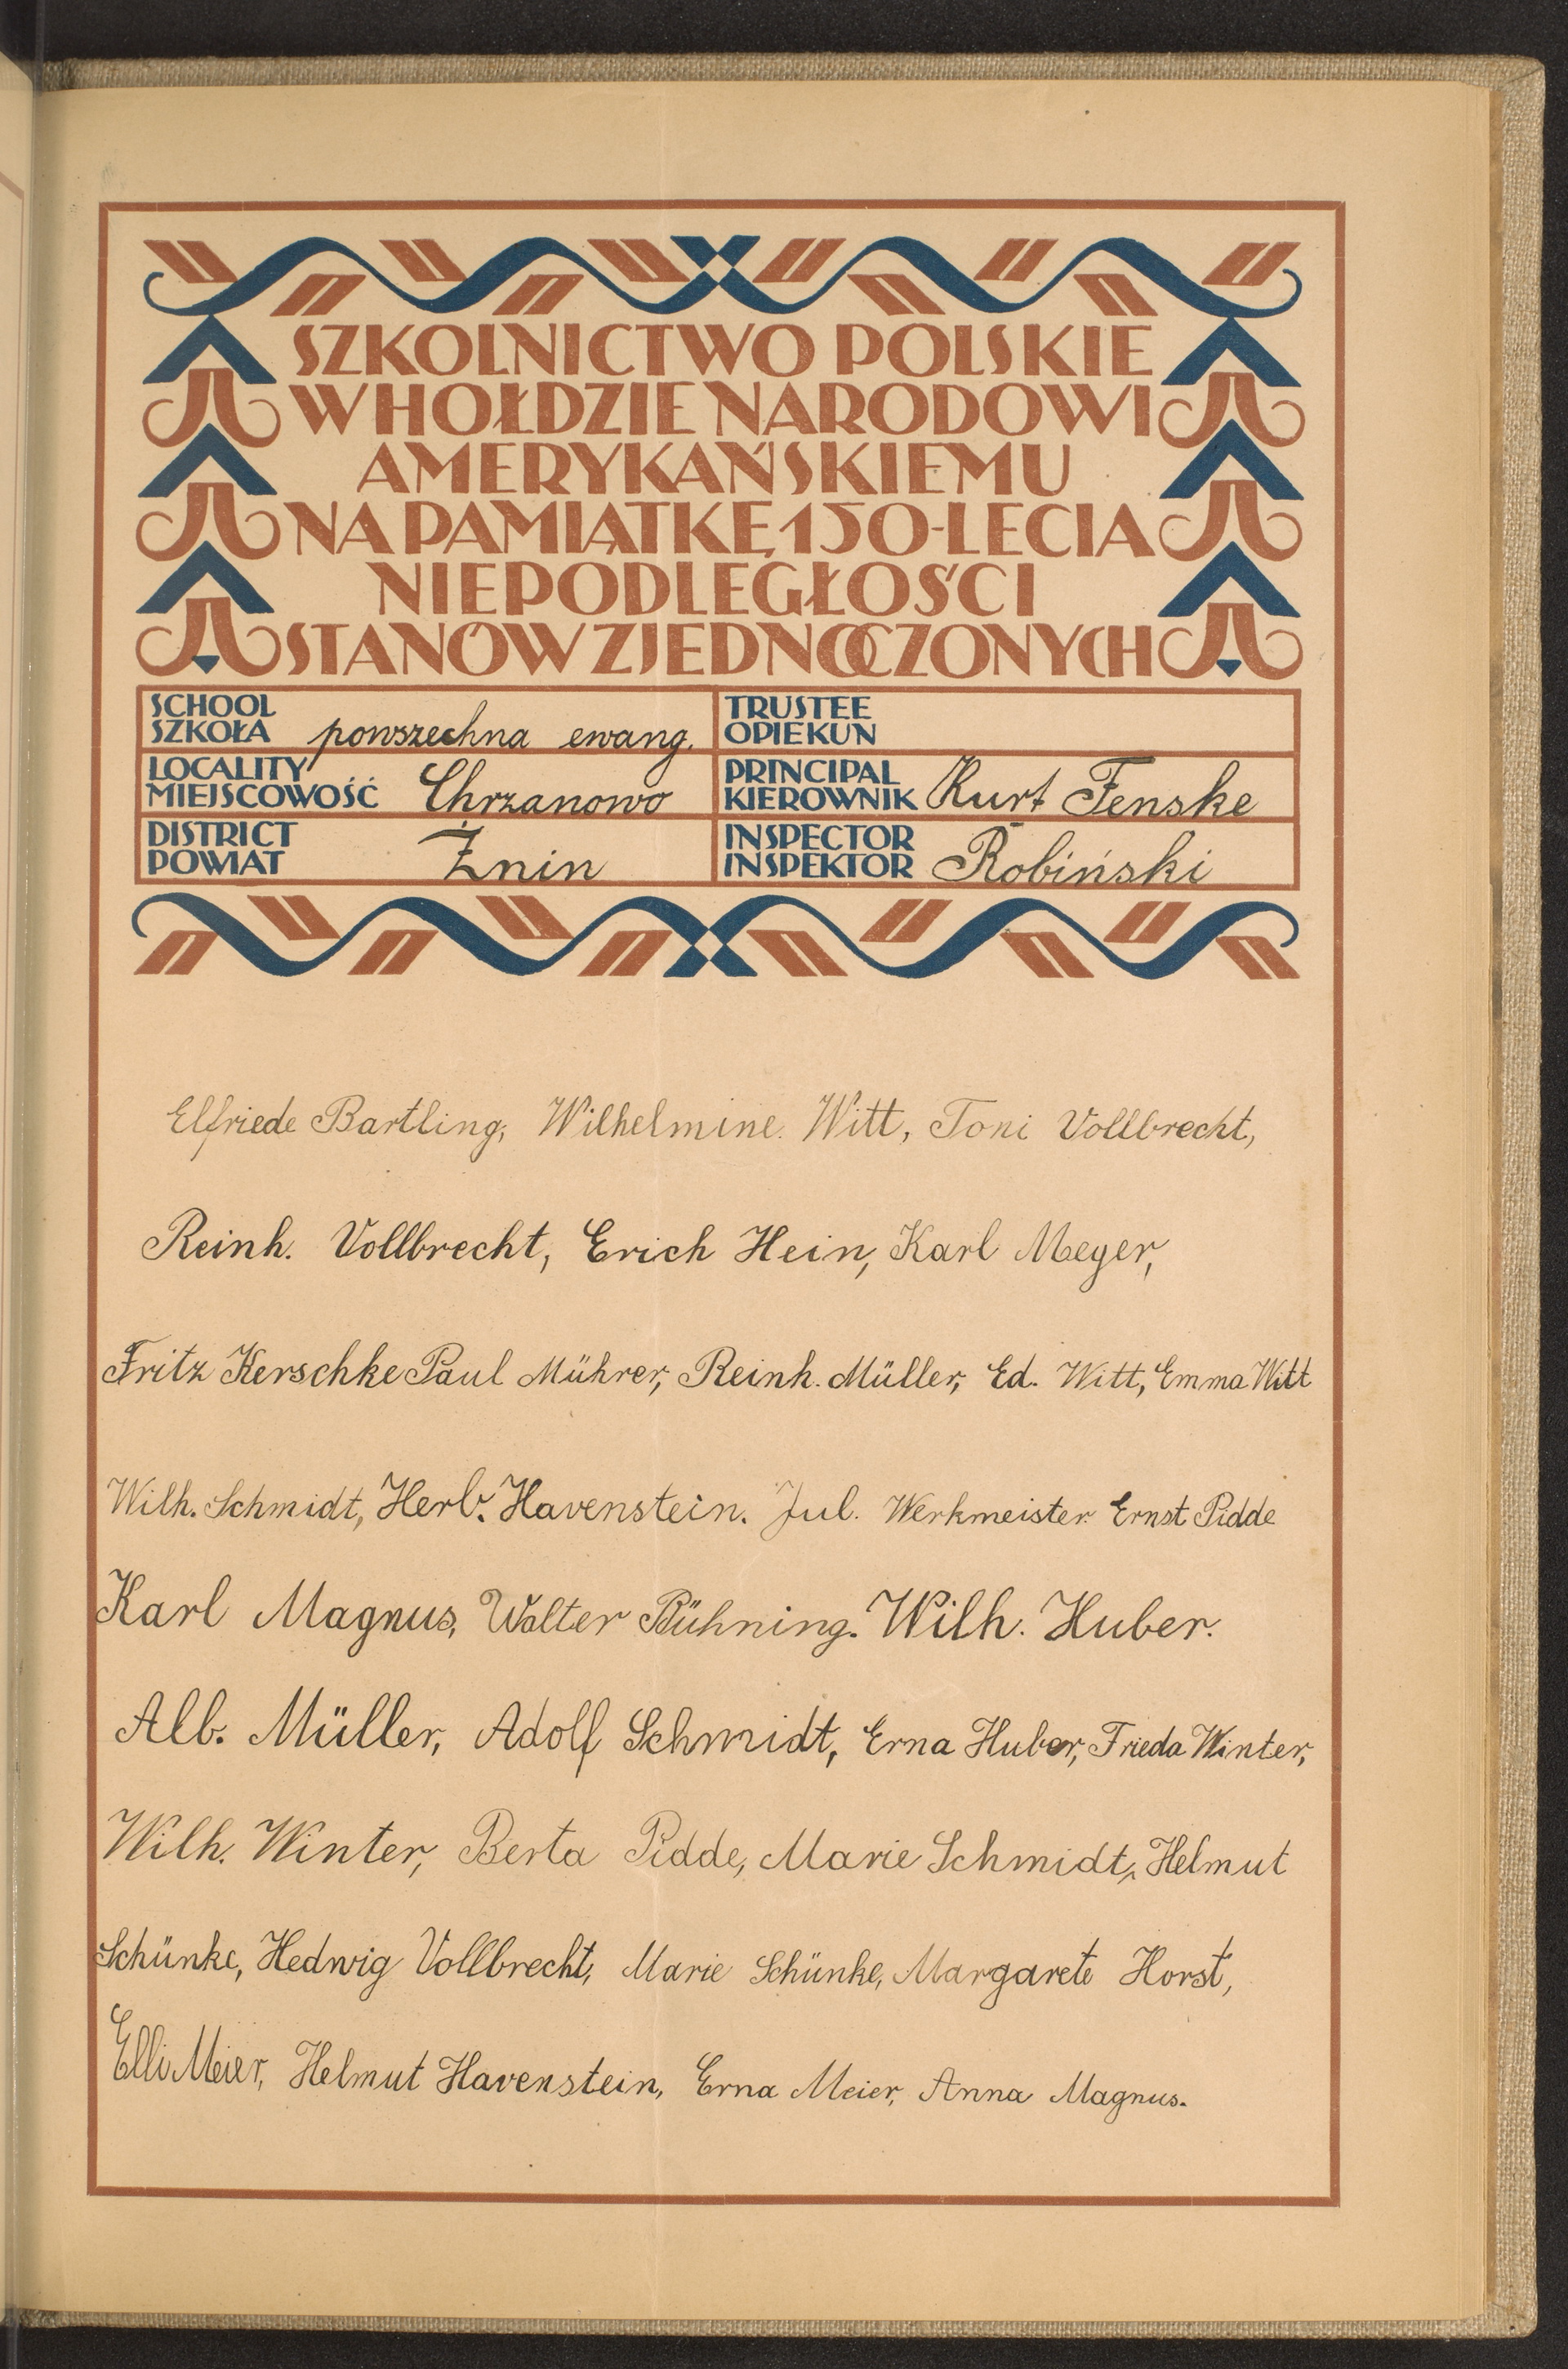 SZKOLNICTWO POLSKIE
W HOŁDZIE NARODOWI
AMERYKAŃSKIEMU
NA PAMIĄTKĘ 150-LECIA
NIEPODLEGŁOŚCI
STANÓW ZJEDNOCZONYCH
SCHOOL
SZKOŁA powszechna ewang.
TRUSTEE
OPIEKUN
LOCALITY
MIEJSCOWOŚĆ Chrzanowo
PRINCIPAL
KIEROWNIK Kurt Fenske
DISTRICT
POWIAT Żnin
INSPECTOR
INSPEKTOR Robiński
Elfriede Bartling, Wilhelmine Witt, Toni Vollbrecht,
Reinh. Vollbrecht, Erich Hein, Karl Meyer,
Fritz Kerschke Paul Mührer, Reinh. Müller, Ed. Witt, Emma Witt
Wilh. Schmidt, Herb. Havenstein. Jul. Werkmeister Ernst Pidde
Karl Magnus, Walter Bühning. Wilh. Huber.
Alb. Müller, Adolf Schmidt, Erna Huber, Frieda Winter,
Wilh. Winter, Berta Pidde, Marie Schmidt, Helmut
Schünke, Hedwig Vollbrecht, Marie Schünke, Margarete Horst,
Elli Meier, Helmut Havenstein, Erna Meier, Anna Magnus.